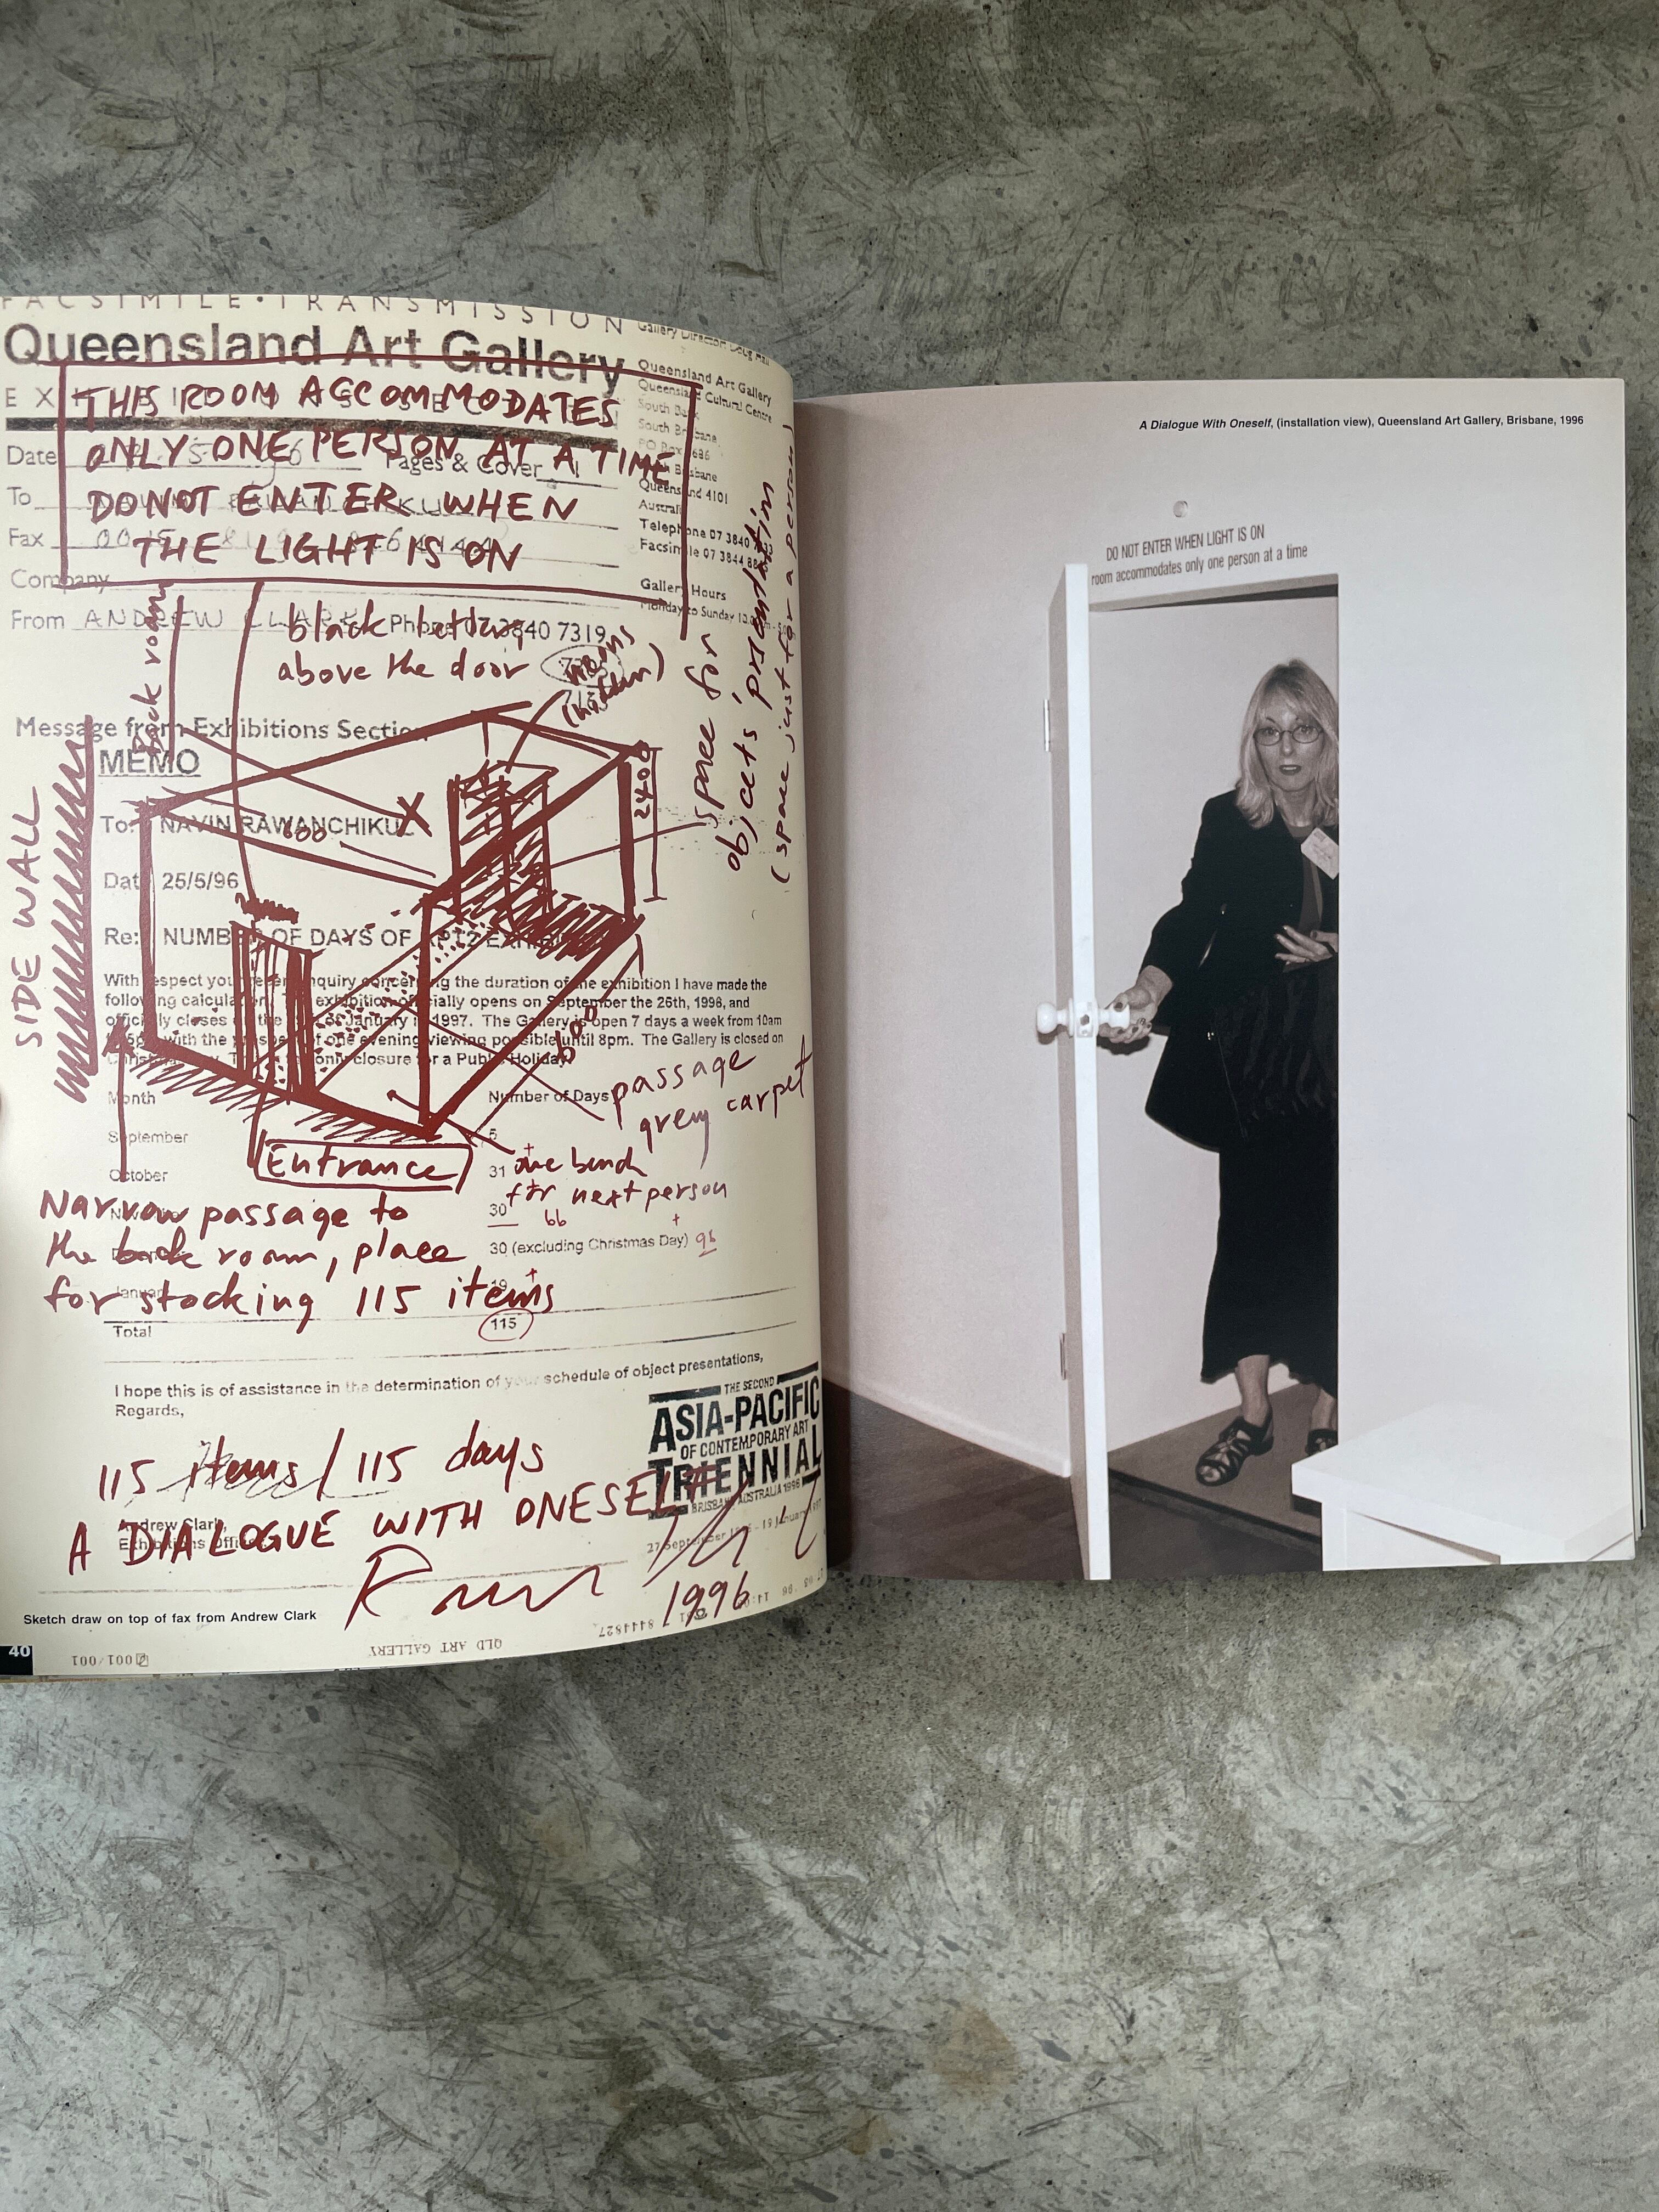 FACSIMILE•TRANSMISSION
Queensland Art Gallery
Gallery Director: Doug Hall
Queensland Art Gallery
Queensland Cultural Centre
South Bank
South Brisbane
Brisbane
Queensland 4101
Telephone 07 3840
Facsimile 07 3844
Gallery Hours
Monday to Sunday
THIS ROOM ACCOMMODATES
ONLY ONE PERSON AT A TIME
DO NOT ENTER WHEN
THE LIGHT IS ON
Date
Pages & Cover 1
To
Fax
Company
From ANDREW CLARK Phone 07 3840 7319
Back room
black lettering
above the door
space for
objects' presentation
(space just for a person)
Message from Exhibitions Section
MEMO
To: NAVIN RAWANCHIKUL
600
2400
SIDE WALL
Date 25/5/96
Re: NUMBER OF DAYS OF APT2
With respect your recent inquiry concerning the duration of the exhibition I have made the
following calculation. exhibition officially opens on September the 26th, 1996, and
officially closes January 1997. The Gallery is open 7 days a week from 10am
with the of one evening viewing possible until 8pm. The Gallery is closed on
only closure for a Public Holiday.
Month
Number of Days
passage
grey carpet
September
5
Entrance
October
31
one bench
for next person
30
66
Narrow passage to
the back room, place
for stocking 115 items
30 (excluding Christmas Day)
96
19
Total
115
I hope this is of assistance in the determination of your schedule of object presentations,
Regards,
THE SECOND
ASIA-PACIFIC
OF CONTEMPORARY ART
TRIENNIAL
BRISBANE AUSTRALIA 1996
27 September 1996 - 19 January 1997
115 items / 115 days
A DIALOGUE WITH ONESELF
Andrew Clark,
Exhibitions Officer
1996
Sketch draw on top of fax from Andrew Clark
40
001/001
QLD ART GALLERY
8444827
A Dialogue With Oneself, (installation view), Queensland Art Gallery, Brisbane, 1996
DO NOT ENTER WHEN LIGHT IS ON
room accommodates only one person at a time